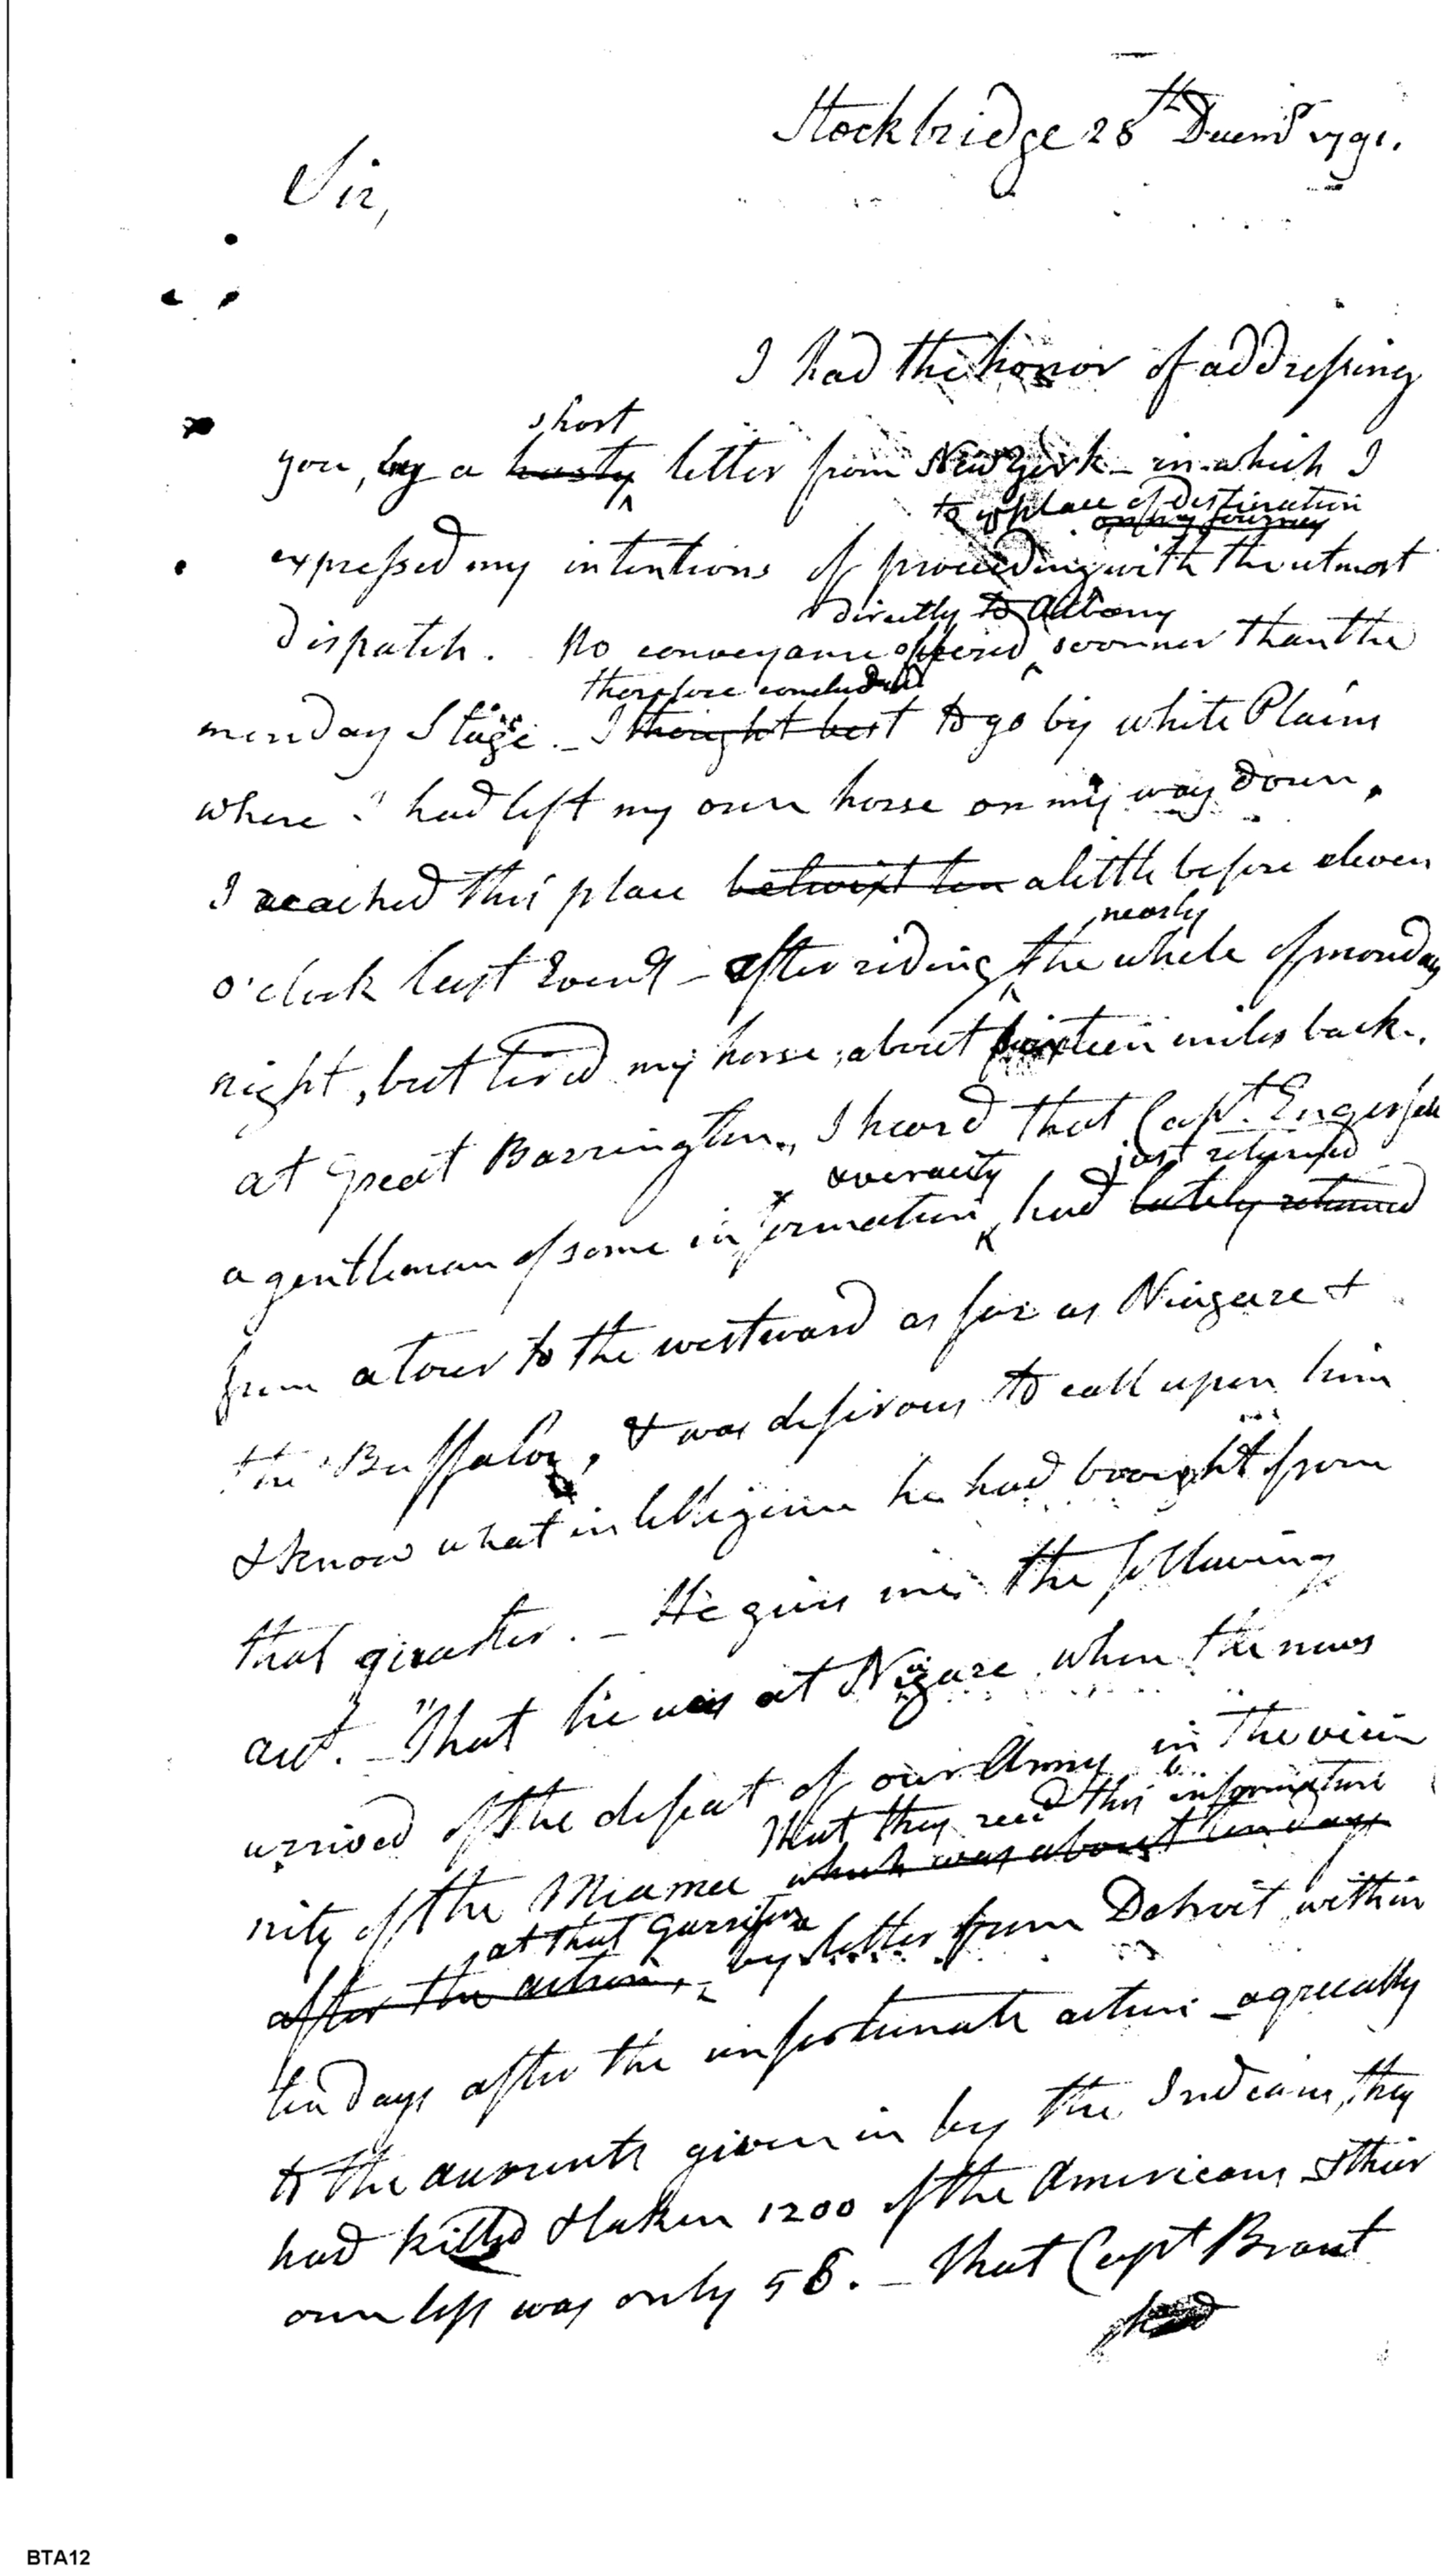 Stockbridge 28th Decemr 1791.
Sir,
I had the honor of addressing
short
you, by a hasty letter from New York - in which I
to ye place of destination
on my journey
expressed my intentions of proceeding with the utmost
directly to Albany
dispatch. No conveyance offered sooner than the
therefore concluded
monday Stage. - I thought best to go by white Plains
where I had left my own horse on my way down,
I reached this place betwixt ten a little before eleven
nearly
o'clock last Eveng - after riding the whole of monday
night, but tired my horse, about fourteen miles back.
at Great Barrington, I heard that Capt. Engersell
& veracity just returned
a gentleman of some information had lately returned
from a tour to the westward as far as Niagara &
the Buffalou, & was desirous to call upon him
& know what intelligence he had brought from
that quarter. - He gives me the following
acct. - "That he was at Niagara when the news
arrived of the defeat of our Army in the vici
That they recd this information
nity of the Miamee which was about ten days
at that Garrison
after the action, - by letter from Detroit within
ten days after the unfortunate action - agreeably
to the accounts given in by the Indians, they
had killed & taken 1200 of the Americans & their
own loss was only 56. - That Capt Brant
had
BTA12